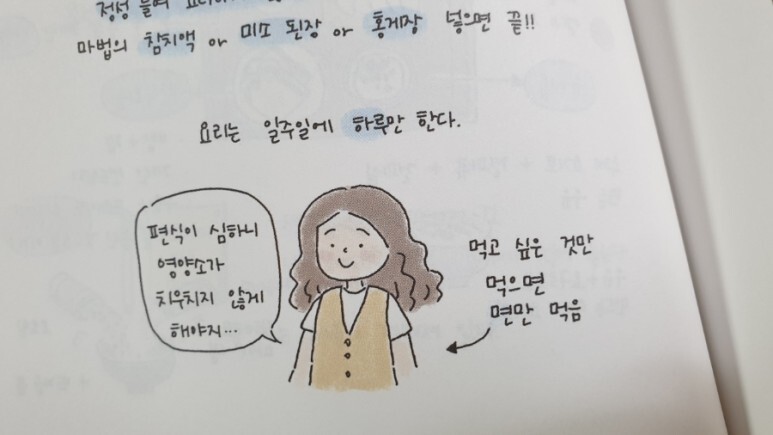 정성 들여 요리
마법의 참치액 or 미소 된장 or 홍게장 넣으면 끝!!
요리는 일주일에 하루만 한다.
편식이 심하니
영양소가
치우치지 않게
해야지...
먹고 싶은 것만
먹으면
면만 먹음